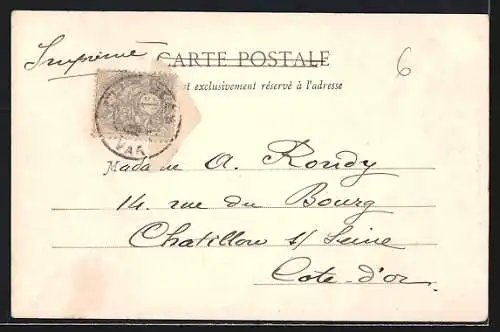 Imprimé
CARTE POSTALE
6
st exclusivement réservé à l'adresse
VAR
Madame A. Roudy
14. rue du Bourg
Chatillon s/ Seine
Cote-d'or.